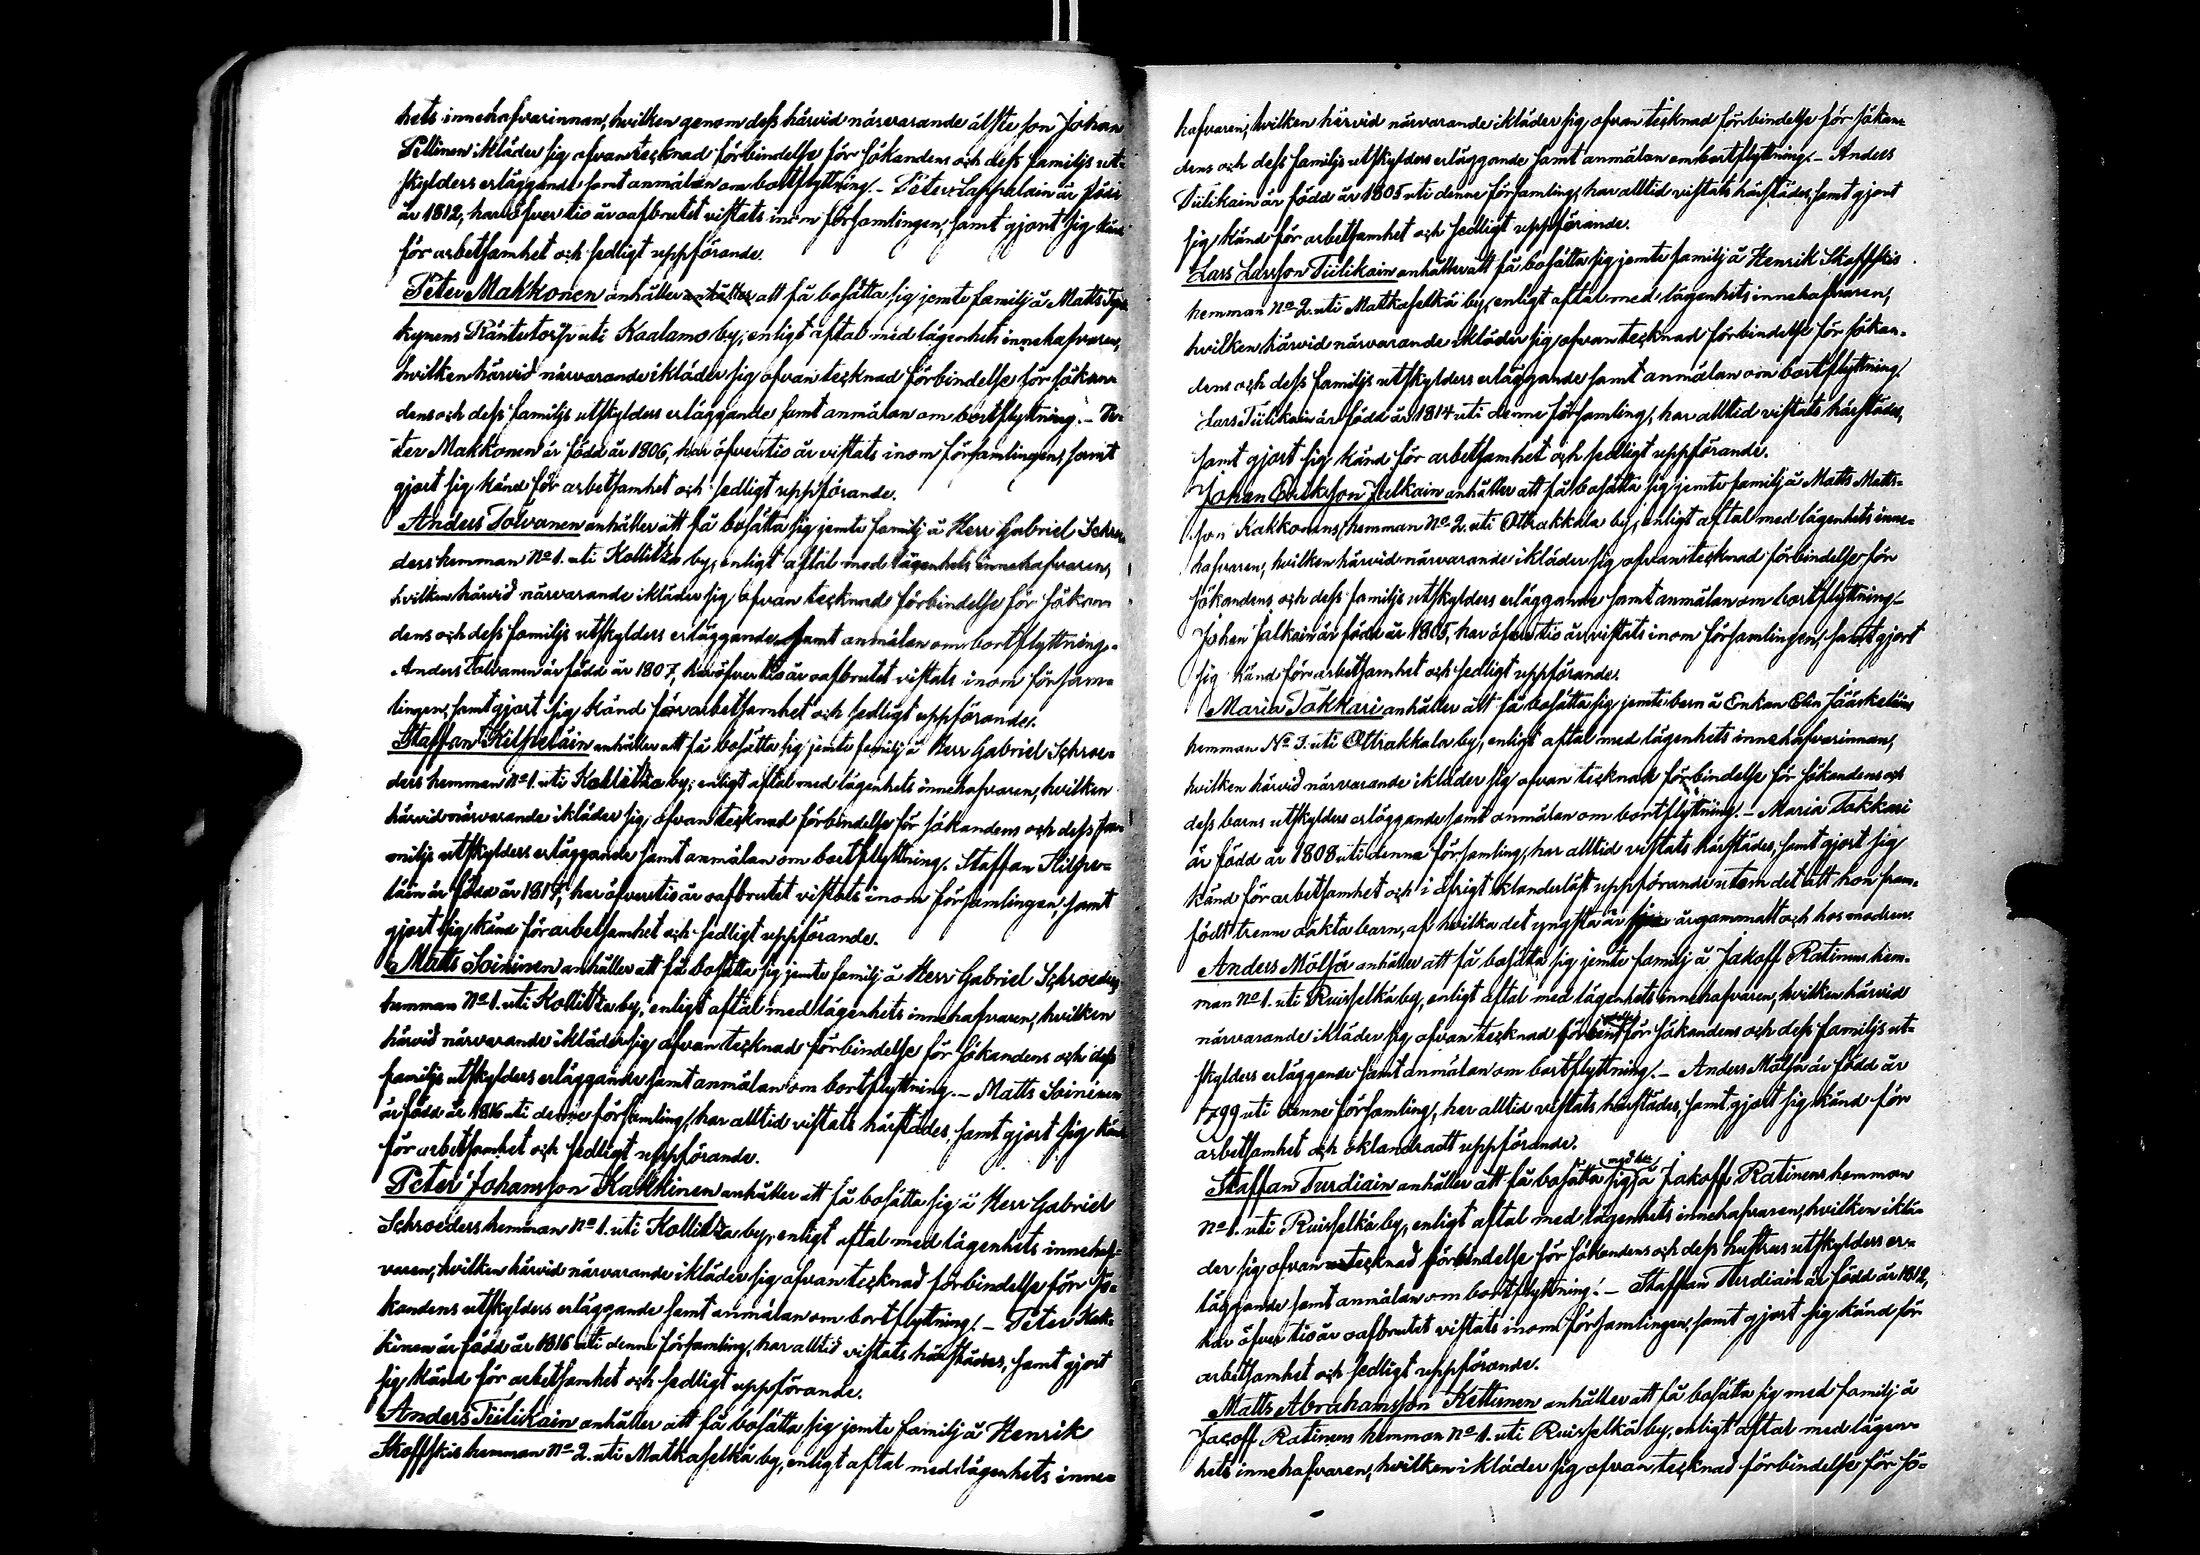 hets innehafvarinnan, hvilken genom dess härvid närvarande älste son Johan
Pellinen ikläder sig ofvantecknad förbindelse för sökandens och dess familjs ut-
skylders erläggande samt anmälan om bortflyttning. - Peter Lappalain är född
år 1812, har öfver tio år oafbrutet vistats inom församlingen, samt gjort sig känd
för arbetsamhet och sedligt uppförande.
Peter Makkonen anhåller att få bosätta sig jemte familj å Matts
kynens Räntetorp uti Kaalamo by, enligt aftal med lägenhets innehafvaren,
hvilken härvid närvarande ikläder sig ofvan tecknad förbindelse för sökan-
dens och dess familjs utskylders erläggande samt anmälan om bortflyttning. - Pe-
ter Makkonen är född år 1806, har öfver tio år vistats inom församlingen, samt
gjort sig känd för arbetsamhet och sedligt uppförande.
Anders Tolvanen anhåller att få bosätta sig jemte familj å Herr Gabriel Schroe-
ders hemman No 1. uti Kollitza by, enligt aftal med lägenhets innehafvaren,
hvilken härvid närvarande ikläder sig ofvan tecknad förbindelse för sökan-
dens och dess familjs utskylders erläggande samt anmälan om bortflyttning.-
Anders Tolvanen är född år 1807, har öfver tio år oafbrutet vistats inom försam-
lingen, samt gjort sig känd för arbetsamhet och sedligt uppförande.
Staffan Hilpeläin anhåller att få bosätta sig jemte familj å Herr Gabriel Schroe-
ders hemman No 1. uti Kollitza by, enligt aftal med lägenhets innehafvaren, hvilken
härvid närvarande ikläder sig ofvan tecknad förbindelse för sökandens och dess fa-
miljs utskylders erläggande samt anmälan om bortflyttning. Staffan Hilpe-
läin är född år 1817, har öfver tio år oafbrutet vistats inom församlingen, samt
gjort sig känd för arbetsamhet och sedligt uppförande.
Matts Soininen anhåller att få bosätta sig jemte familj å Herr Gabriel Schroeders
hemman No 1. uti Kollitza by, enligt aftal med lägenhets innehafvaren, hvilken
härvid närvarande ikläder sig ofvan tecknad förbindelse för sökandens och dess
familjs utskylders erläggande samt anmälan om bortflyttning. - Matts Soininen
är född år 1816 uti denne församling, har alltid vistats härstädes, samt gjort sig känd
för arbetsamhet och sedligt uppförande.
Peter Johansson Kakkinen anhåller att få bosätta sig å Herr Gabriel
Schroeders hemman No 1. uti Kollitza by, enligt aftal med lägenhets innehaf-
varen, hvilken härvid närvarande ikläder sig ofvan tecknad förbindelse för sö-
kandens utskylders erläggande samt anmälan om bortflyttning. - Peter Kak-
kinen är född år 1816 uti denne församling, har alltid vistats härstädes, samt gjort
sig känd för arbetsamhet och sedligt uppförande.
Anders Tiilikain anhåller att få bosätta sig jemte familj å Henrik
Skoffskis hemman No 2. uti Matkaselkä by, enligt aftal med lägenhets inne-
hafvaren, hvilken härvid närvarande ikläder sig ofvan tecknad förbindelse för sökan-
dens och dess familjs utskylders erläggande samt anmälan om bortflyttning. - Anders
Tiilikain är född år 1805 uti denne församling, har alltid vistats härstädes, samt gjort
sig känd för arbetsamhet och sedligt uppförande.
Lars Larsson Tiilikain anhåller att få bosätta sig jemte familj å Henrik Skoffskis
hemman No 2. uti Matkaselkä by, enligt aftal med lägenhets innehafvaren,
hvilken härvid närvarande ikläder sig ofvan tecknad förbindelse för sökan-
dens och dess familjs utskylders erläggande samt anmälan om bortflyttning.
Lars Tiilikain är född år 1814 uti denne församling, har alltid vistats härstädes,
samt gjort sig känd för arbetsamhet och sedligt uppförande.
Johan Eriksson Jalkain anhåller att få bosätta sig jemte familj å Matts Matts-
son Kakkonens hemman No 2. uti Ottrakkala by, enligt aftal med lägenhets inne-
hafvaren, hvilken härvid närvarande ikläder sig ofvan tecknad förbindelse för
sökandens och dess familjs utskylders erläggande samt anmälan om bortflyttning.-
Johan Jalkain är född år 1805, har öfver tio år vistats inom församlingen, samt gjort
sig känd för arbetsamhet och sedligt uppförande.
Maria Takkari anhåller att få bosätta sig jemte barn å Enkan Elin Jääskeläins
hemman No 3. uti Ottrakkala by, enligt aftal med lägenhets innehafvarinnan,
hvilken härvid närvarande ikläder sig ofvan tecknad förbindelse för sökandens och
dess barns utskylders erläggande samt anmälan om bortflyttning. - Maria Takkari
är född år 1808 uti denna församling, har alltid vistats härstädes, samt gjort sig
känd för arbetsamhet och i öfrigt klanderlöst uppförande utom det att hon fram-
födt trenne oäkta barn, af hvilka det yngsta är årgammalt och hos modren.
Anders Mölsä anhåller att få bosätta sig jemte familj å Jakoff Ratinens hem-
man No 1. uti Ruisselkä by, enligt aftal med lägenhets innehafvaren, hvilken härvid
närvarande ikläder sig ofvan tecknad förbindelse för sökandens och dess familjs ut-
skylders erläggande samt anmälan om bortflyttning. - Anders Mölsä är född år
1799 uti denne församling, har alltid vistats härstädes, samt gjort sig känd för
arbetsamhet och oklandradt uppförande.
Staffan Turdiain anhåller att få bosätta sig med hu å Jakoff Ratinens hemman
No 1. uti Ruisselkä by, enligt aftal med lägenhets innehafvaren, hvilken iklä-
der sig ofvan tecknad förbindelse för sökandens och dess hustrus utskylders er-
läggande samt anmälan om bortflyttning. - Staffan Turdiain är född år 1812,
har öfver tio år oafbrutet vistats inom församlingen, samt gjort sig känd för
arbetsamhet och sedligt uppförande.
Matts Abrahamsson Kettunen anhåller att få bosätta sig med familj å
Jacoff Ratinens hemman No 1. uti Ruisselkä by, enligt aftal med lägen-
hets innehafvaren, hvilken ikläder sig ofvan tecknad förbindelse för sö-